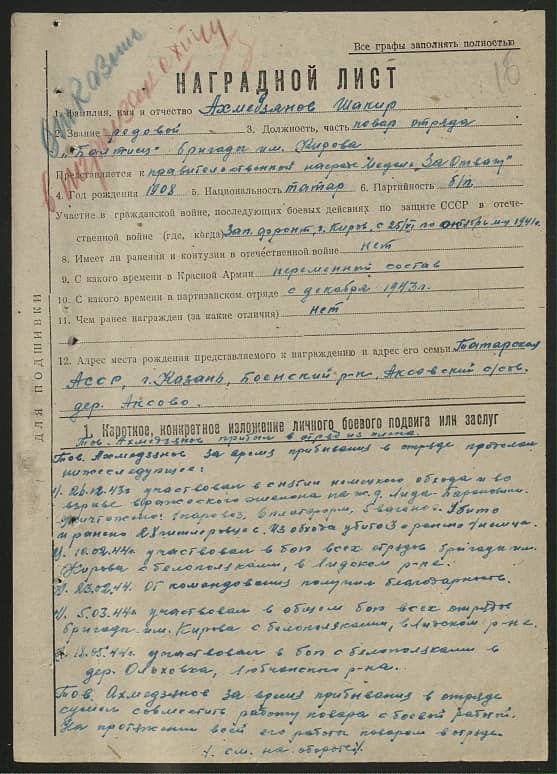 От Казань
Все графы заполнять полностью
18
НАГРАДНОЙ ЛИСТ
1. фамилия, имя и отчество Ахмедзянов Шакир
2. Звание рядовой 3. Должность, часть повар отряда
"Балтиец" бригады им. Кирова
Представляется к правительственной награде медаль "За Отвагу"
4. Год рождения 1908 5. Национальность татар 6. Партийность б/п
Участие в гражданской войне, последующих боевых действиях по защите СССР в отече-
ственной войне (где, когда) Зап. фронт, г. Киров, с 25/VI по октябрь м-ц 1941г.
8. Имеет ли ранения и контузии в отечественной войне нет
9. С какого времени в Красной Армии переменный состав
10. С какого времени в партизанском отряде с декабря 1943г.
11. Чем ранее награжден (за какие отличия) нет
12. Адрес места рождения представляемого к награждению и адрес его семьи Татарская
АССР, г. Казань, Буенский р-н, Аксовский с/сов.
дер. Аксово.
ДЛЯ ПОДШИВКИ
1. Короткое, конкретное изложение личного боевого подвига или заслуг
Тов. Ахмедзянов прибыл в отряд из плена.
Тов. Ахмедзянов за время пребывания в отряде проделал
нижеследующее:
1/. 26.12.43г. участвовал в снятии немецкого обхода и во
взрыве вражеского эшелона на ж.д. Лида-Барановичи.
Уничтожено: 1 паровоз, 6 платформ, 5 вагонов. Убито
и ранено гитлеровцев. Из обхода убито 3 и ранено 1 немца.
2/. 10.02.44г. участвовал в бою всех отрядов бригады им.
Кирова с белополяками, в Лидском р-не.
3/. 23.02.44. От командования получил благодарность.
4/. 5.03.44г. участвовал в общем бою всех отрядов
бригады им. Кирова с белополяками, в Лидском р-не.
5. 18.05.44г. участвовал в бою с белополяками в
дер. Ольховка, Любчанского р-на.
Тов. Ахмедзянов за время пребывания в отряде
сумел совместить работу повара с боевой работой.
На протяжении всей его работы поваром в отряде
/. см. на обороте/.